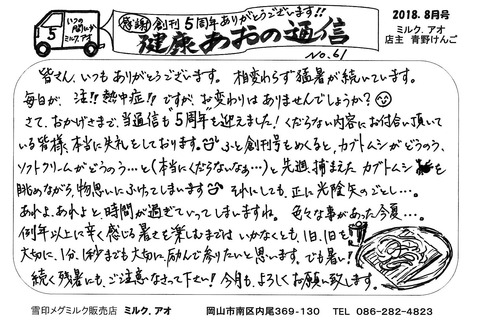 いつの間にか
ミルク.アオ
5
感謝 創刊5周年ありがとうございます!!
健康あおの通信
No.61
2018.8月号
ミルク.アオ
店主 青野けんご
皆さん、いつもありがとうございます。 相変わらず猛暑が続いています。
毎日が、注!!熱中症!! ですが、お変わりはありませんでしょうか?
さて、おかげさまで、当通信も"5周年"を迎えました! くだらない内容にお付合い頂いて
いる皆様、本当に失礼をしております。 ふと創刊号をめくると、カブトムシがどうのう、
ソフトクリームがどうのう…と(本当にくだらないなぁ…)と先週、捕まえたカブトムシを
眺めながら、物思いにふけってしまいます それにしても、正に光陰矢のごとし…。
あれよ、あれよと、時間が過ぎていってしまいますね。 色々な事があった今夏…。
例年以上に辛く感じる暑さを楽しむまでは いかなくとも、1日、1日を
大切に、1分、1秒までも大切に、励んで参りたいと思います。でも暑い!
続く残暑にも、ご注意なさって下さい! 今月も、よろしくお願い致します。
雪印メグミルク販売店 ミルク.アオ 岡山市南区内尾369-130 TEL 086-282-4823